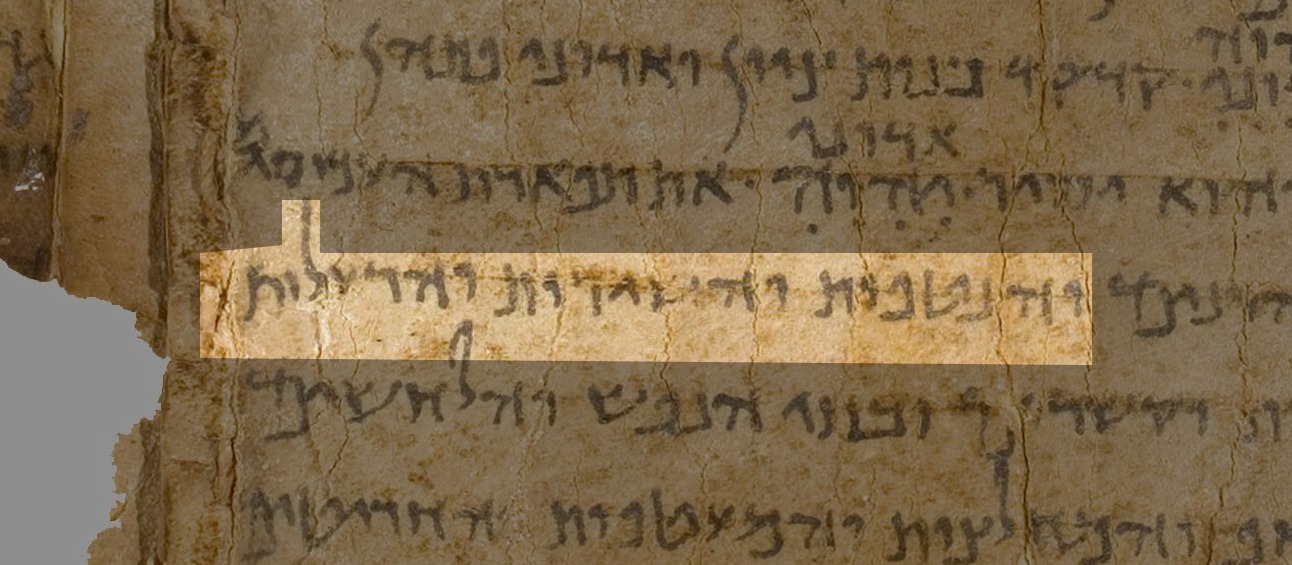 קודקד בנות ציון ואדוני פתהן
אדוני
ההוא יסיר יהוה את תפארת העכיסים
והנטפות והשירות והרעלות
והקשרים ובתי הנפש והלחשים
והמחלצות והמעטפות